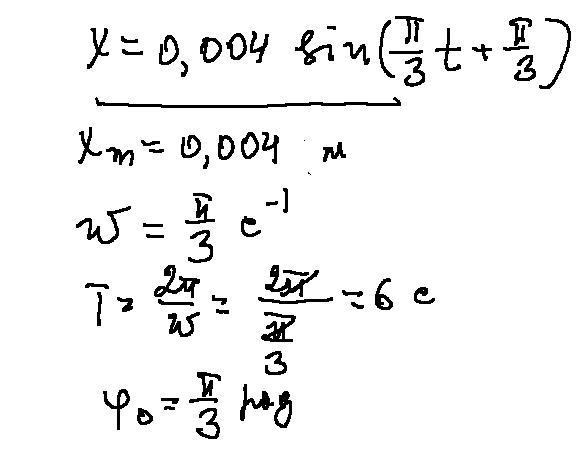 x = 0,004 sin(π/3 t + π/3)
xm = 0,004 м
ω = π/3 с⁻¹
T = 2π/ω = 2π/(π/3) = 6 с
φ₀ = π/3 рад